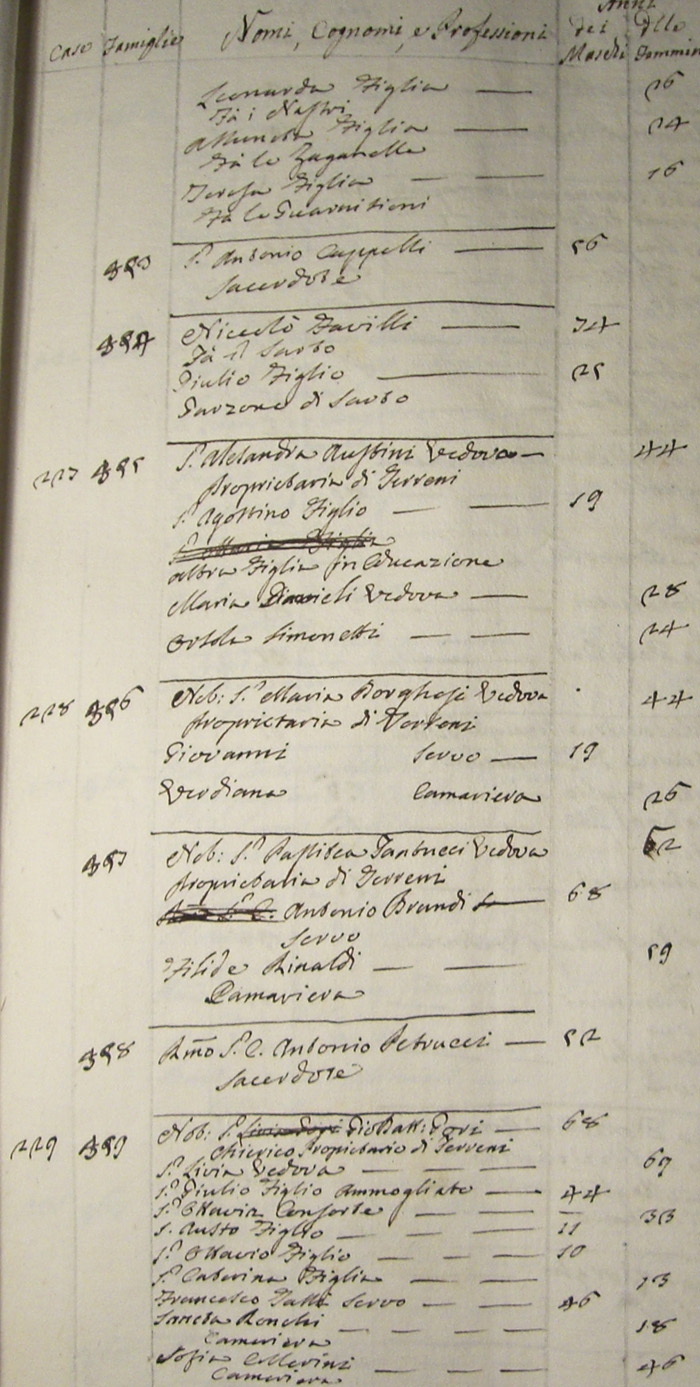 Case Famiglie Nomi, Cognomi, e Professioni Anni dei Maschi Anni dlle Femmin
Leonarda Figlia — 26
Fà i Nastri
Assunta Figlia — 24
Fà le Zaganelle
Teresa Figlia — — 16
Fà le Guarnizioni
453 S.r Antonio Cappelli — 56
Sacerdote
454 Niccolò Favilli — 74
Fà il Sarto
Giulio Figlio — 25
Garzone di Sarto
227 455 S.ra Alesandra Vedova — 44
Proprietaria di Terreni
S.r Agostino Figlio — — 19
altra Figlia in Educazione
Maria Vedova — — 28
Orsola Simonetti — — 24
228 456 Nob: S.ra Maria Borghesi Vedova 44
Proprietaria di Terreni
Giovanni Servo — 19
Verdiana Camariera 26
457 Nob: S.ra Vedova 62
Proprietaria di Terreni
Antonio Brandi — 68
Servo
Filide Rinaldi — — 59
Camariera
458 Rmo S.r C. Antonio Petrucci — 52
Sacerdote
229 459 Nob: S.r Gio Batt: Gori — 68
Chierico Proprietario di Terreni
S.ra Livia Vedova — — — 67
S.r Giulio Figlio Ammogliato — 44
S.ra Ottavia Consorte — — — 33
S.r Figlio — — — 11
S.r Ottavio Figlio — — — 10
S.ra Caterina Figlia — — — 13
Francesco Servo — — 46
Ronchi — — — 18
Camariera
Sofia — — — 46
Camariera